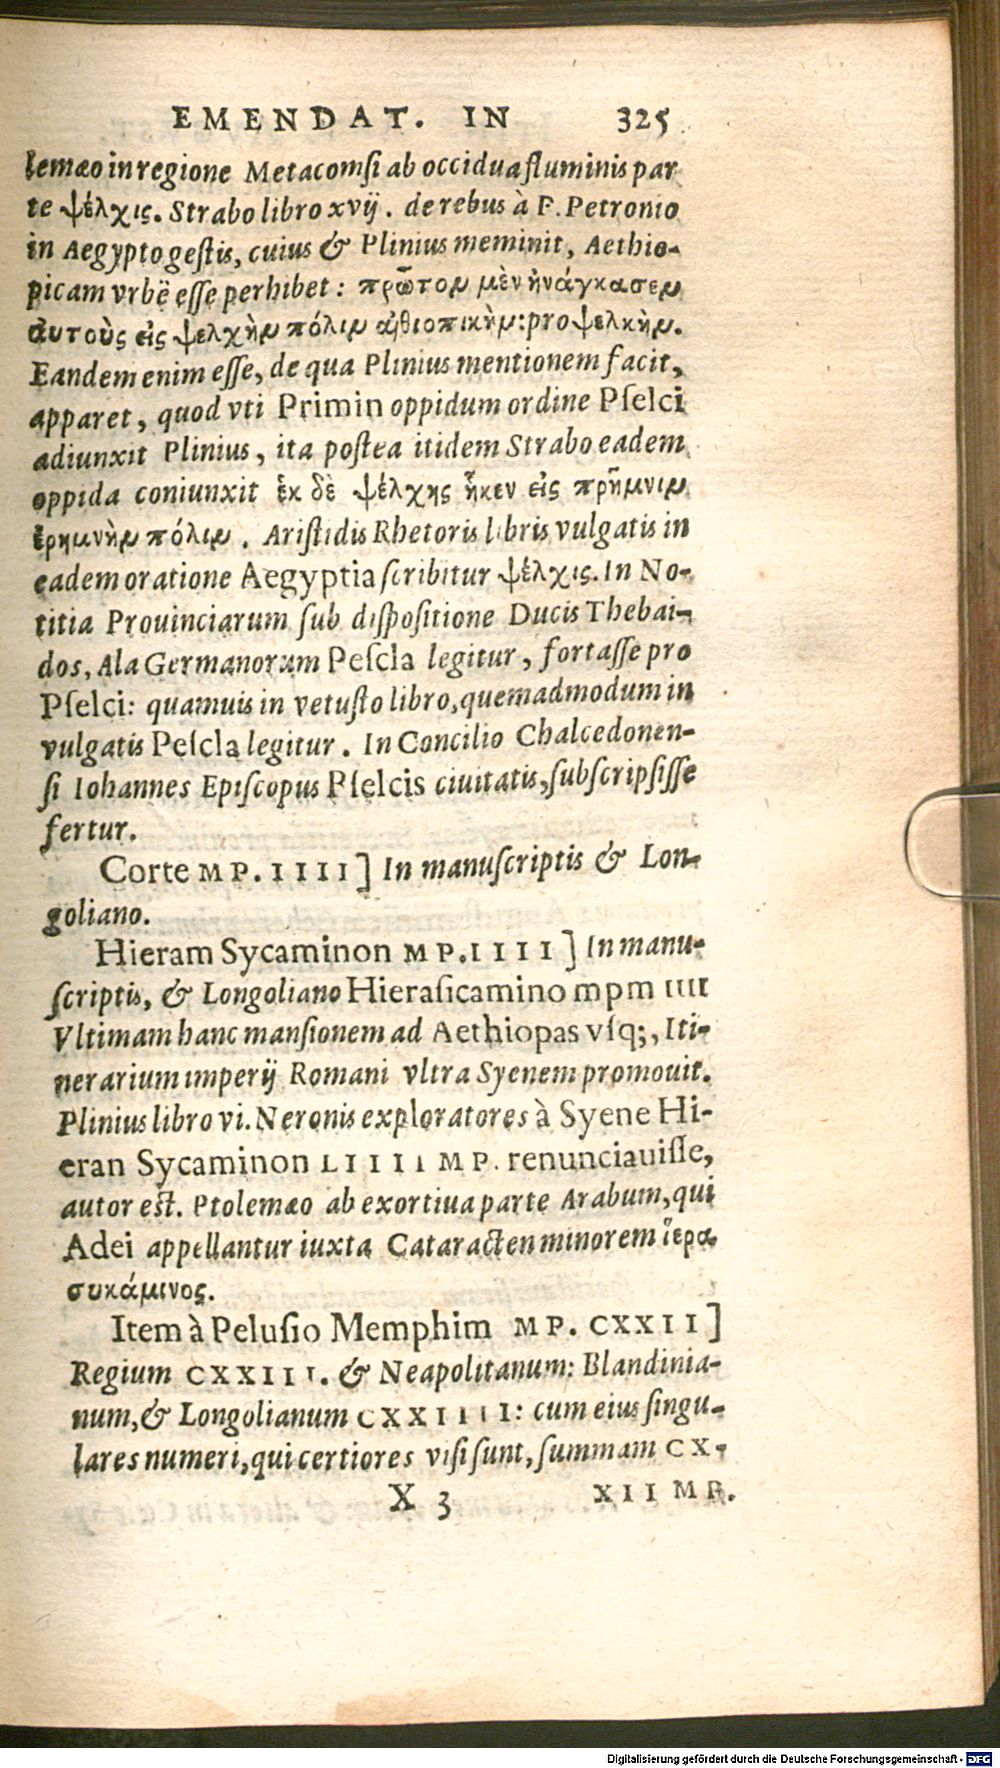 EMENDAT. IN 325
lemæo in regione Metacomsi ab occidua fluminis par
te ψέλχις. Strabo libro xvij. de rebus à P. Petronio
in Aegypto gestis, cuius & Plinius meminit, Aethio-
picam vrbē esse perhibet: πρῶτον μὲν ἠνάγκασεν
αυτοὺς εἰς ψελχὴν πόλιν αἰθιοπικὴν: pro ψελκὴν.
Eandem enim esse, de qua Plinius mentionem facit,
apparet, quod vti Primin oppidum ordine Pselci
adiunxit Plinius, ita postea itidem Strabo eadem
oppida coniunxit ἐκ δὲ ψέλχης ἧκεν εἰς πρῆμνιν
ἐρημνὴν πόλιν. Aristidis Rhetoris libris vulgatis in
eadem oratione Aegyptia scribitur ψέλχις. In No-
titia Prouinciarum sub dispositione Ducis Thebai-
dos, Ala Germanorum Pescla legitur, fortasse pro
Pselci: quamuis in vetusto libro, quemadmodum in
vulgatis Pescla legitur. In Concilio Chalcedonen-
si Iohannes Episcopus Pselcis ciuitatis, subscripsisse
fertur.
Corte MP. IIII] In manuscriptis & Lon-
goliano.
Hieram Sycaminon MP. IIII] In manu-
scriptis, & Longoliano Hierasicamino mpm IIII
Vltimam hanc mansionem ad Aethiopas vsq;, Iti-
nerarium imperij Romani vltra Syenem promouit.
Plinius libro vi. Neronis exploratores à Syene Hi-
eran Sycaminon LIIII MP. renunciauisse,
autor est. Ptolemæo ab exortiua parte Arabum, qui
Adei appellantur iuxta Cataracten minorem ἱερα
συκάμινος.
Item à Pelusio Memphim MP. CXXII]
Regium CXXIII. & Neapolitanum: Blandinia-
num, & Longolianum CXXIIII: cum eius singu-
lares numeri, qui certiores visi sunt, summam CX-
X 3 XII MP.
Digitalisierung gefördert durch die Deutsche Forschungsgemeinschaft - DFG